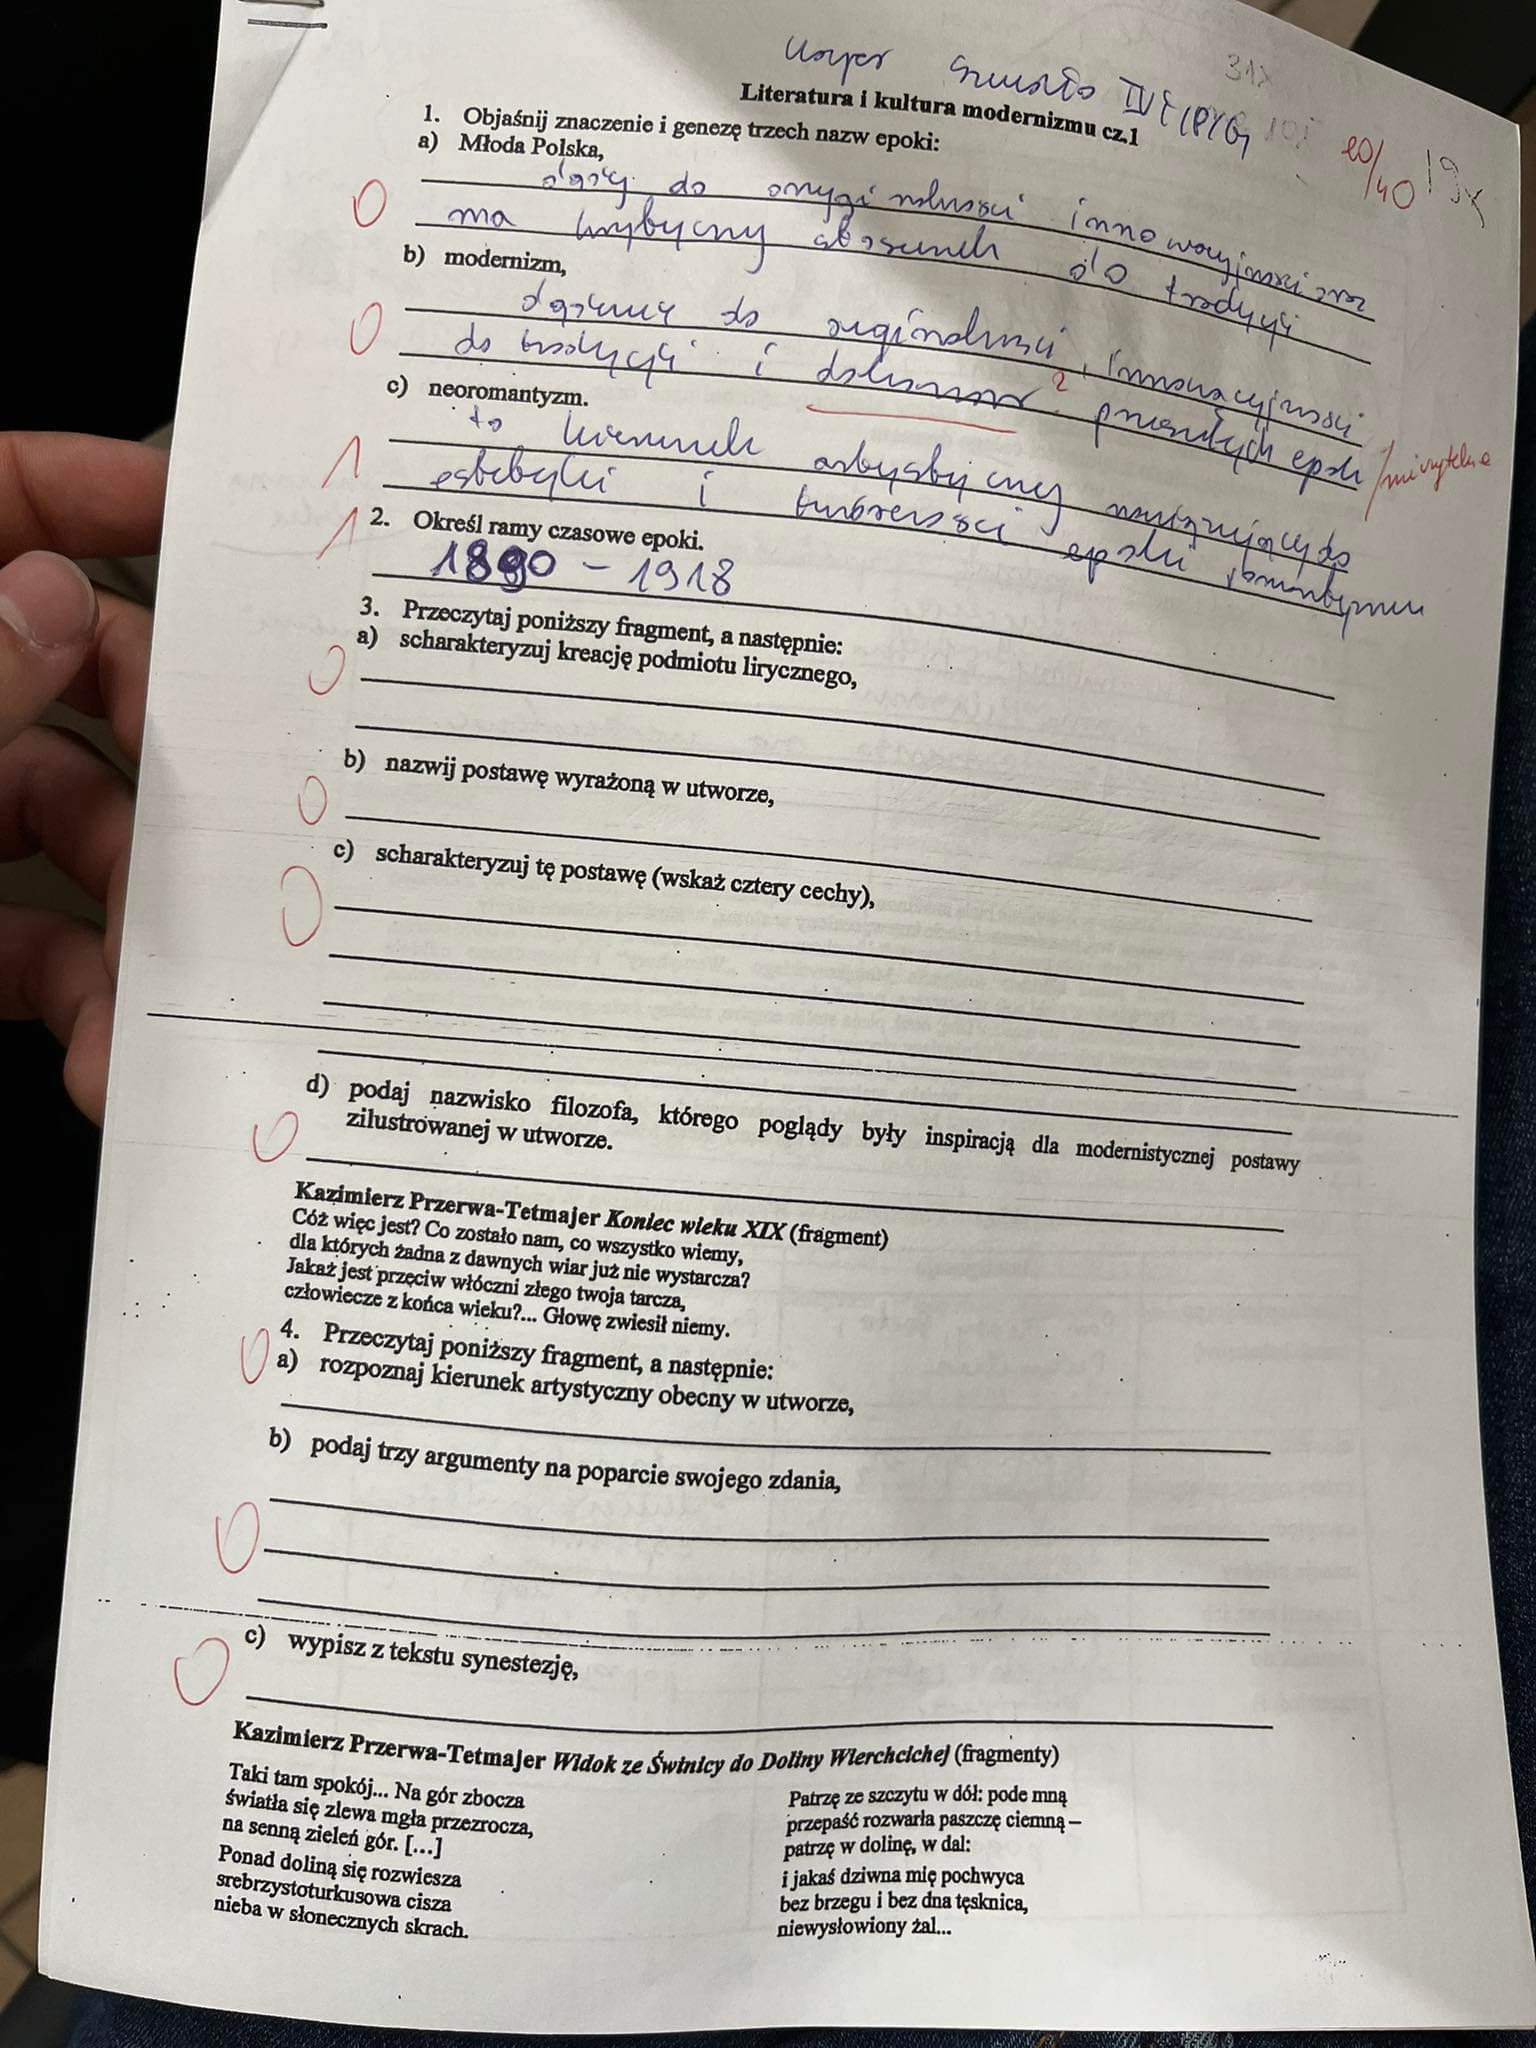 Literatura i kultura modernizmu cz.1
20/40
1. Objaśnij znaczenie i genezę trzech nazw epoki:
a) Młoda Polska,
do innowacyjności oraz
0 ma stosunek do tradycji
b) modernizm,
do
0 do tradycji i przeszłych epok
c) neoromantyzm.
1 to kierunek artystyczny nawiązujący do
estetyki i twórczości epoki romantyzmu
1 2. Określ ramy czasowe epoki.
1890 - 1918
3. Przeczytaj poniższy fragment, a następnie:
0 a) scharakteryzuj kreację podmiotu lirycznego,
0 b) nazwij postawę wyrażoną w utworze,
0 c) scharakteryzuj tę postawę (wskaż cztery cechy),
0 d) podaj nazwisko filozofa, którego poglądy były inspiracją dla modernistycznej postawy
zilustrowanej w utworze.
Kazimierz Przerwa-Tetmajer Koniec wieku XIX (fragment)
Cóż więc jest? Co zostało nam, co wszystko wiemy,
dla których żadna z dawnych wiar już nie wystarcza?
Jakaż jest przeciw włóczni złego twoja tarcza,
człowiecze z końca wieku?... Głowę zwiesił niemy.
4. Przeczytaj poniższy fragment, a następnie:
0 a) rozpoznaj kierunek artystyczny obecny w utworze,
b) podaj trzy argumenty na poparcie swojego zdania,
0
0 c) wypisz z tekstu synestezję,
Kazimierz Przerwa-Tetmajer Widok ze Świnicy do Doliny Wierchcichej (fragmenty)
Taki tam spokój... Na gór zbocza
światła się zlewa mgła przezrocza,
na senną zieleń gór. [...]
Ponad doliną się rozwiesza
srebrzystoturkusowa cisza
nieba w słonecznych skrach.
Patrzę ze szczytu w dół: pode mną
przepaść rozwarła paszczę ciemną –
patrzę w dolinę, w dal:
i jakaś dziwna mię pochwyca
bez brzegu i bez dna tęsknica,
niewysłowiony żal...